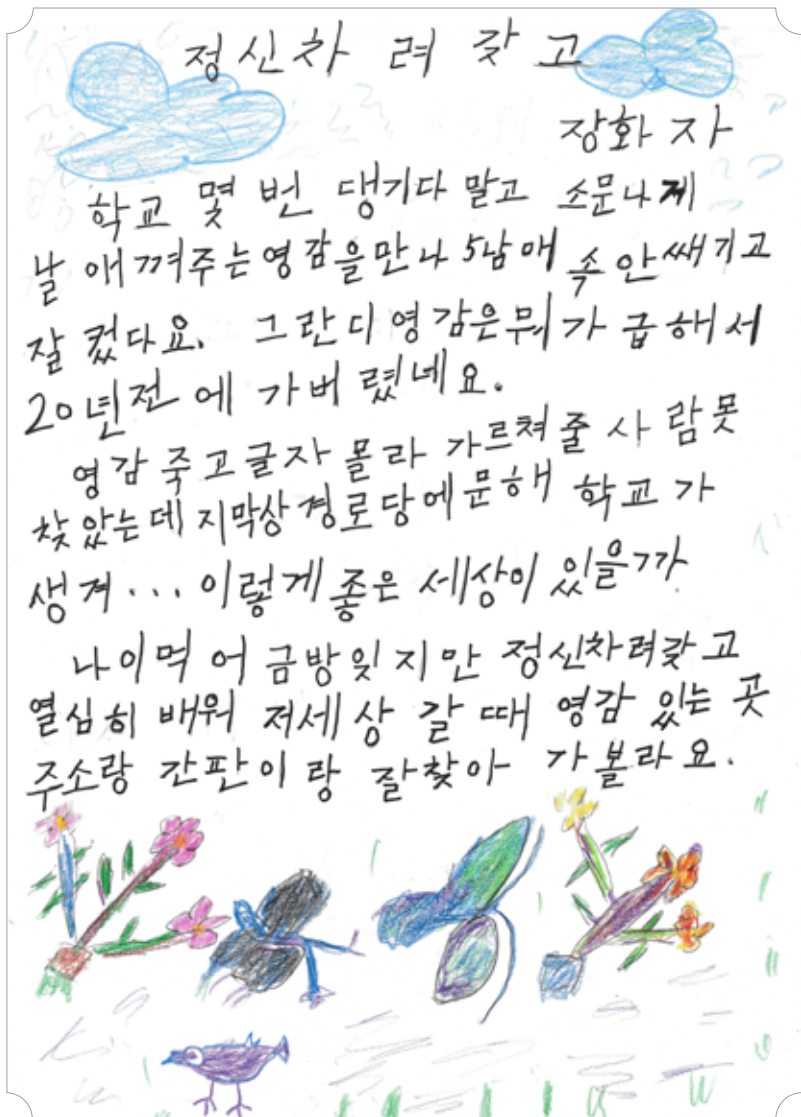 정신차려갖고
장화자
학교 몇 번 댕기다 말고 소문나게
날 애껴주는 영감을 만나 5남매 속 안쌔기고
잘 컸다요. 그란디 영감은 뭐가 급해서
20년전에 가버렸네요.
영감 죽고 글자 몰라 가르쳐줄 사람 못
찾았는데 지막상 경로당에 문해 학교가
생겨... 이렇게 좋은 세상이 있을까
나이먹어 금방 잊지만 정신차려갖고
열심히 배워 저세상 갈 때 영감 있는 곳
주소랑 간판이랑 잘찾아 가볼라요.